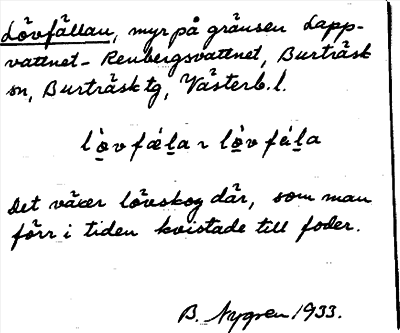 Lövfällan, myr på gränsen Lapp-
vattnet - Renbergsvattnet, Burträsk
sn, Burträsk tg, Västerb. l.
Det växer lövskog där, som man
förr i tiden kvistade till foder.
B. Nygren 1933.